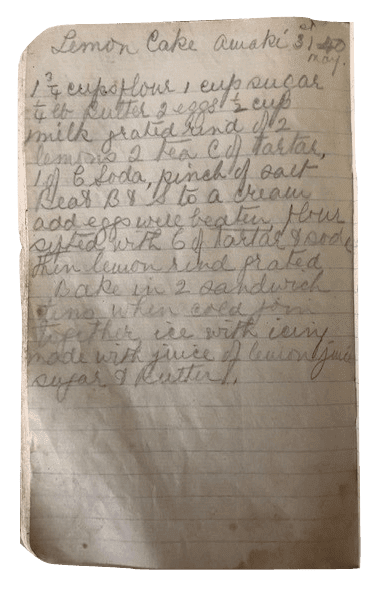 Lemon Cake Awaki 31st 40
May.
1 3/4 cups flour 1 cup sugar
1/4 lb butter 2 eggs 1/2 cup
milk grated rind of 2
lemons 2 tea C of Tartar,
1 of C Soda, pinch of salt
Beat B & S to a cream
add eggs well beaten, flour
sifted with C of Tartar & soda
then lemon rind grated
Bake in 2 sandwich
tins when cold join
together ice with icing
made with juice of lemon juice
sugar & butter.